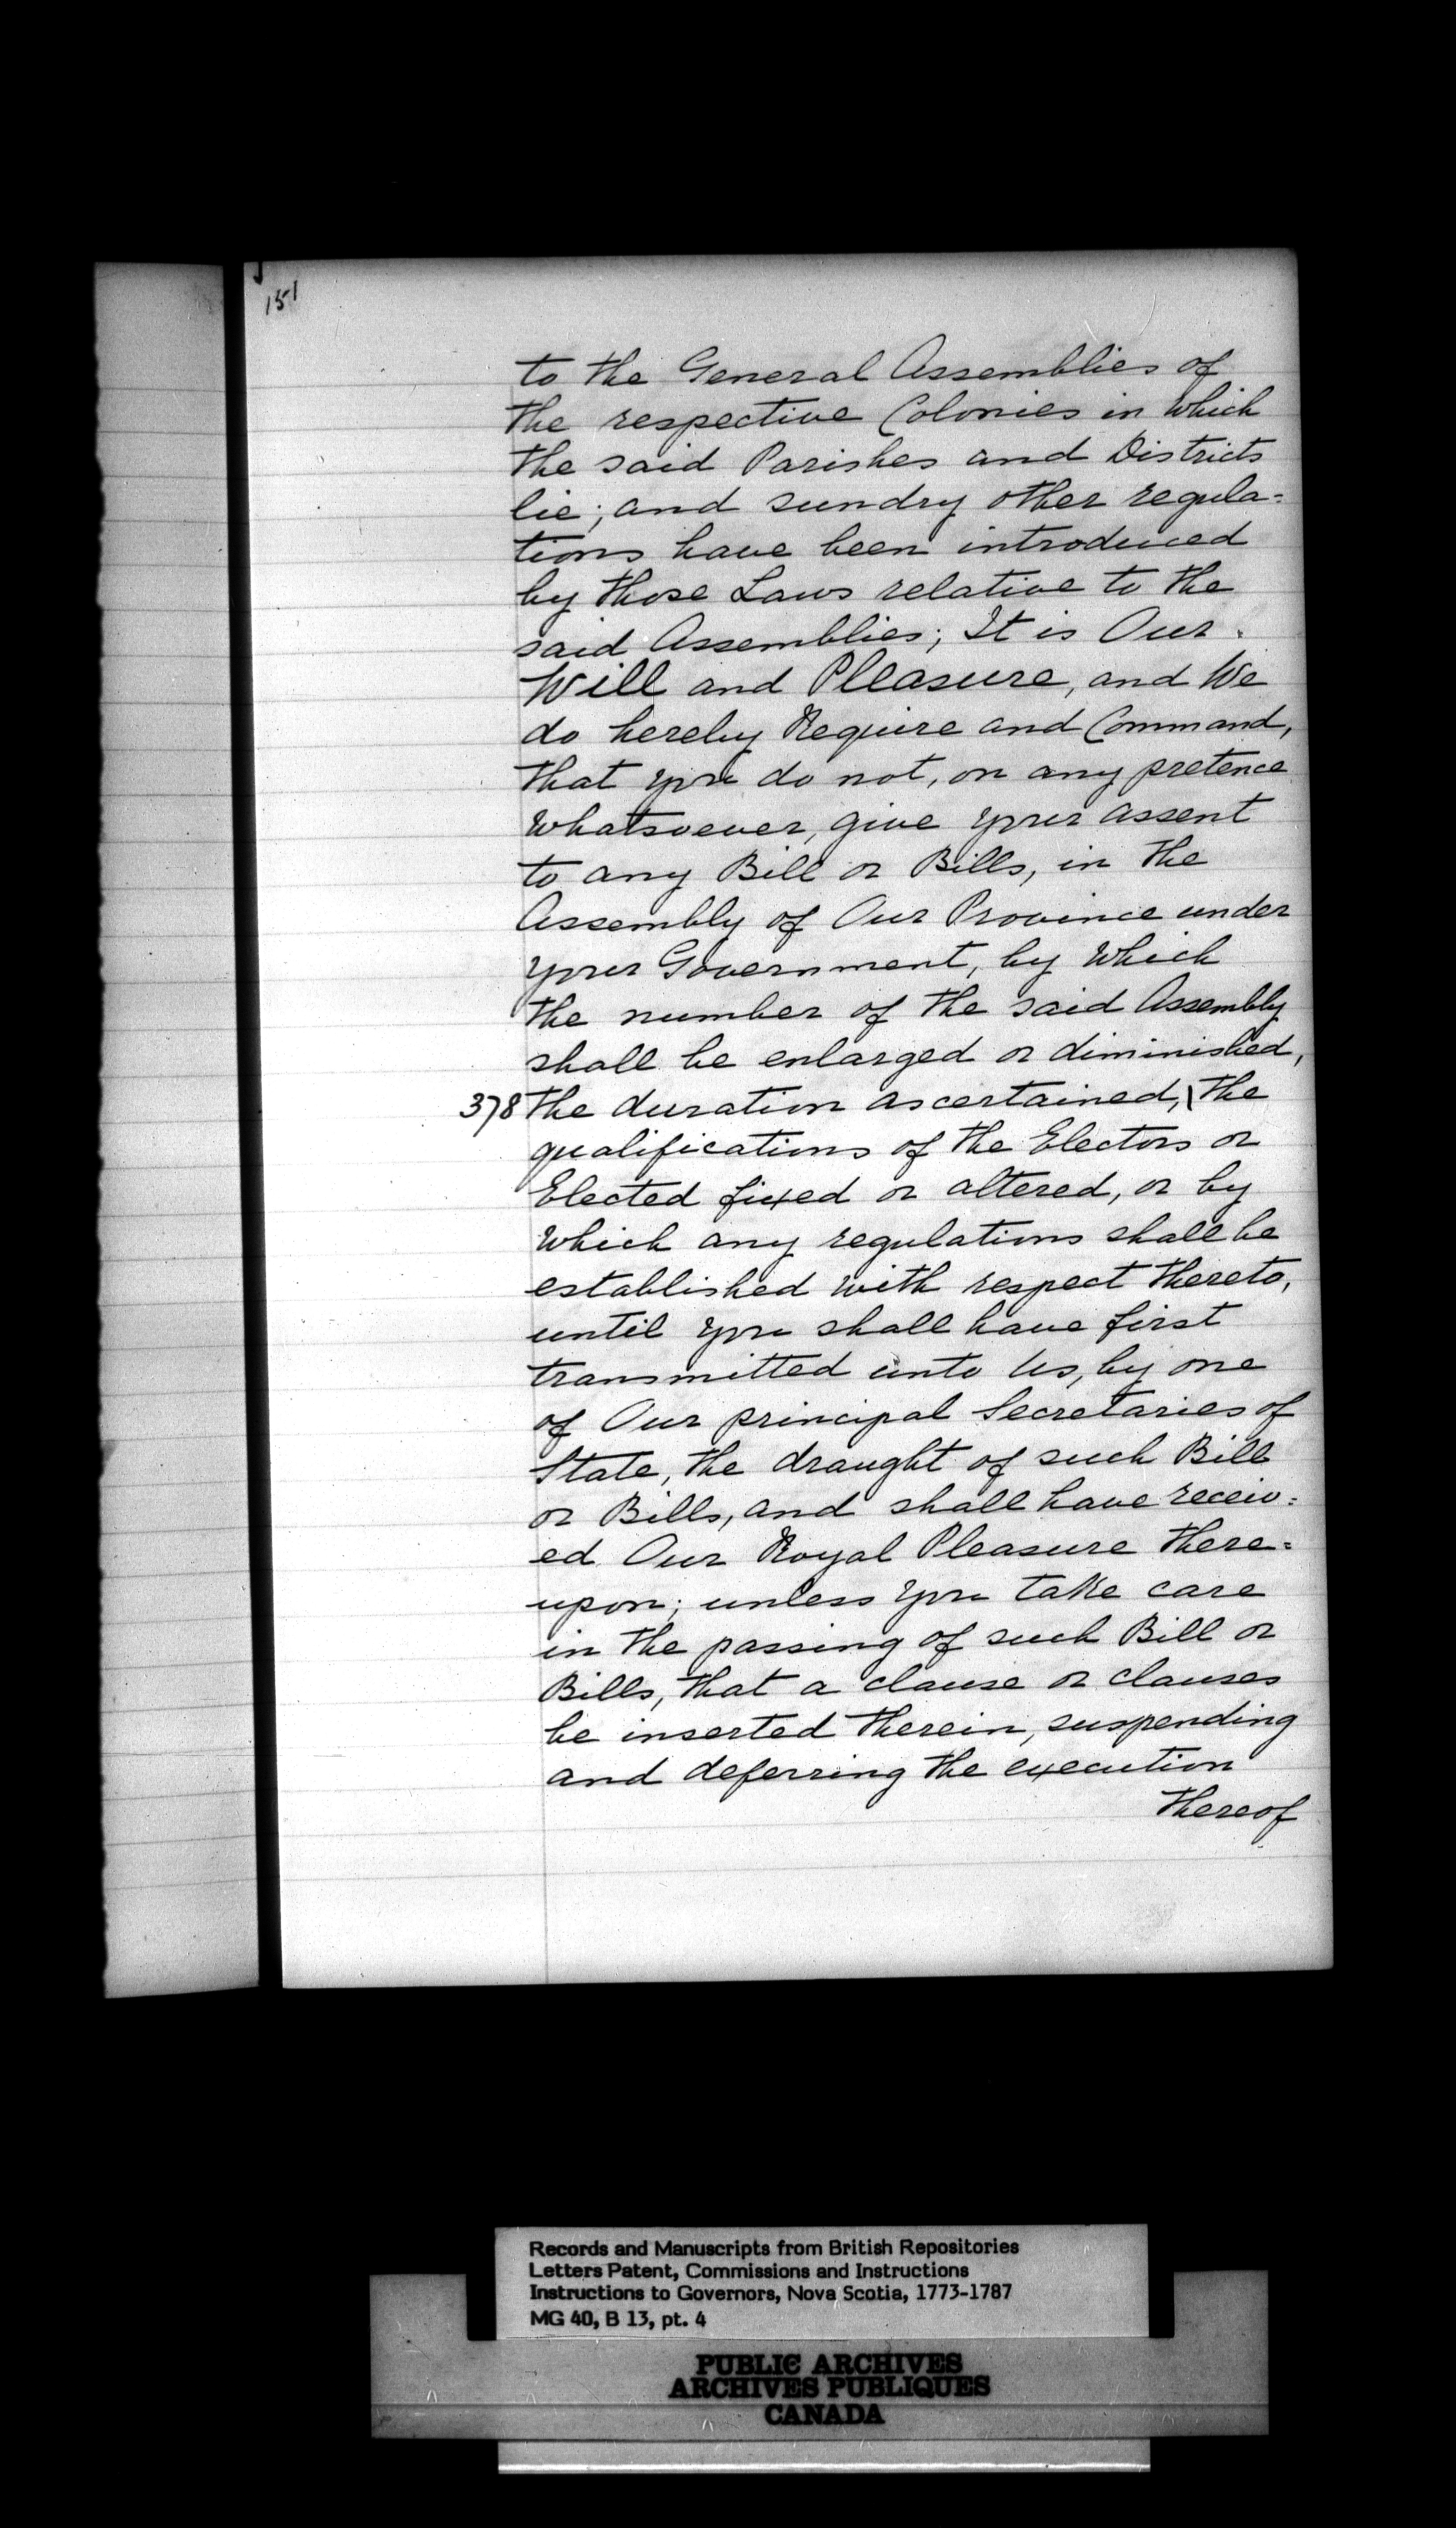 151
to the General Assemblies of
the respective Colonies in which
the said Parishes and Districts
lie; and sundry other regula=
tions have been introduced
by those Laws relative to the
said Assemblies; It is Our
Will and Pleasure, and We
do hereby Require and Command,
that you do not, on any pretence
whatsoever, give your assent
to any Bill or Bills, in the
Assembly of Our Province under
your Government, by which
the number of the said Assembly
shall be enlarged or diminished,
378 the duration ascertained, \ the
qualifications of the Electors or
Elected fixed or altered, or by
which any regulations shall be
established with respect thereto,
until you shall have first
transmitted unto Us, by one
of Our principal Secretaries of
State, the draught of such Bill
or Bills, and shall have receiv=
ed Our Royal Pleasure there=
upon; unless you take care
in the passing of such Bill or
Bills, that a clause or clauses
be inserted therein, suspending
and deferring the execution
thereof
Records and Manuscripts from British Repositories
Letters Patent, Commissions and Instructions
Instructions to Governors, Nova Scotia, 1773-1787
MG 40, B 13, pt. 4
PUBLIC ARCHIVES
ARCHIVES PUBLIQUES
CANADA